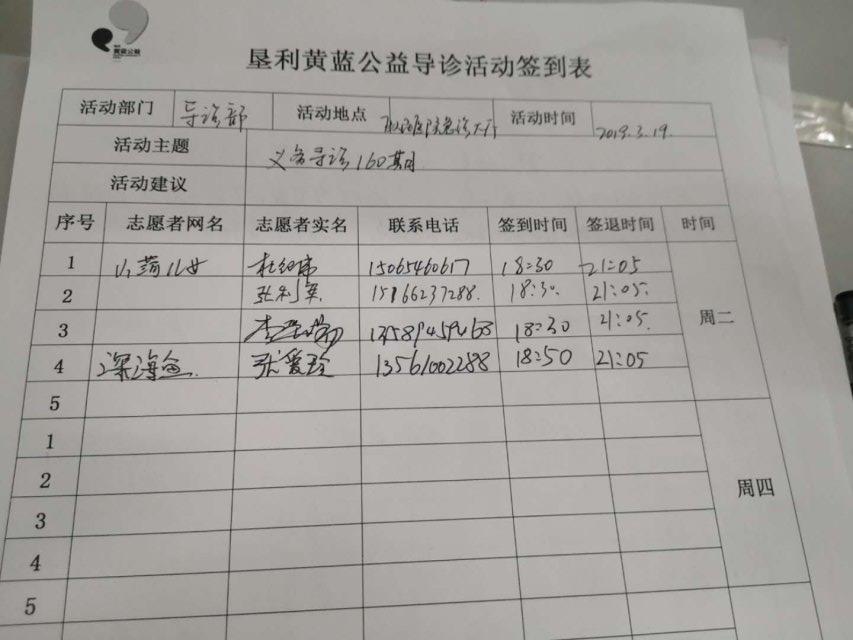 黄蓝公益
垦利黄蓝公益导诊活动签到表
活动部门 导诊部 活动地点 急诊大厅 活动时间 2019.3.19.
活动主题 义务导诊160期
活动建议
序号 志愿者网名 志愿者实名 联系电话 签到时间 签退时间 时间
1 儿女 15065460617 18:30 21:05
2 张利军 15166237288. 18:30. 21:05.
3 13589459468 18:30 21:05. 周二
4 深海鱼. 张爱玲 13561002288 18:50 21:05
5
1
2
3 周四
4
5